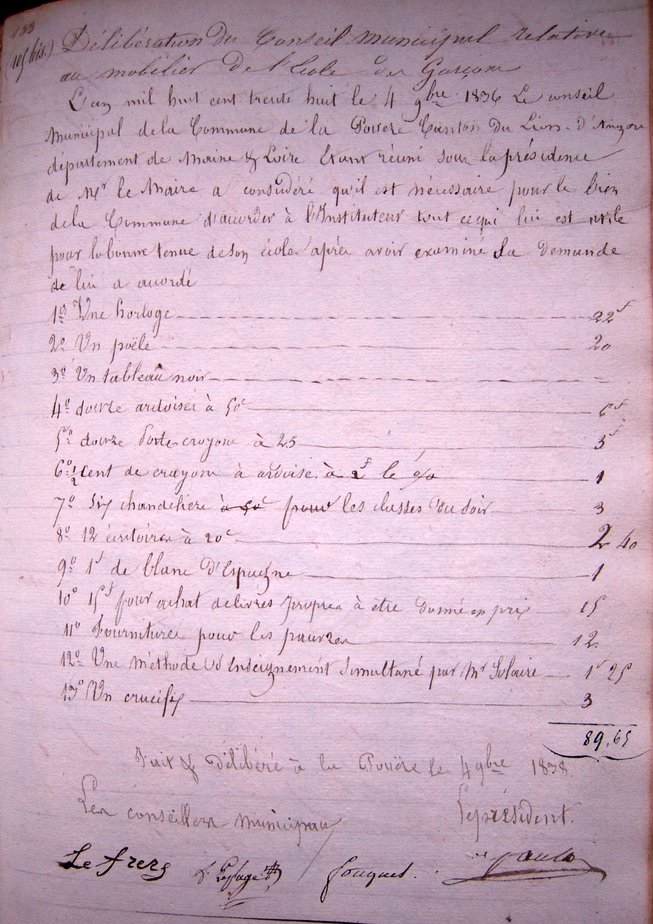 (105 bis.)
Délibération du Conseil municipal relative
au mobilier de l'Ecole des Garçons
L'an mil huit cent trente huit le 4 9bre 1836 Le conseil
Municipal de la Commune de la Pouëze Canton du Lion-d'Angers
département de Maine & Loire Etant réuni sous la présidence
de Mr le Maire a considéré qu'il est nécessaire pour le bien
de la Commune d'accorder à l'Instituteur tout ce qui lui est utile
pour la bonne tenue de son école après avoir examiné sa demande
de lui a accordé
1º Une horloge 22f
2º Un poële 20
3º Un tableau noir -
4º douze ardoises à 50c 6f
5º douze Porte crayons à 25 3f
6º 1/2 cent de crayons à ardoise à 2f le % 1
7º Six chandeliers à 50c pour les classes du soir 3
8º 12 écritoires à 20c 2 40
9º 1f de blanc d'Espagne 1
10º 15f pour achat de livres propres à être donné en prix 15
11º Fournitures pour les pauvres 12
12º Une méthode d'enseignement simultané par Mr 1f 25
13º Un crucifix 3
89,65
Fait & délibéré à la Pouëze le 4 9bre 1838
Les conseillers municipaux Le président.
Le frere Fouquet.